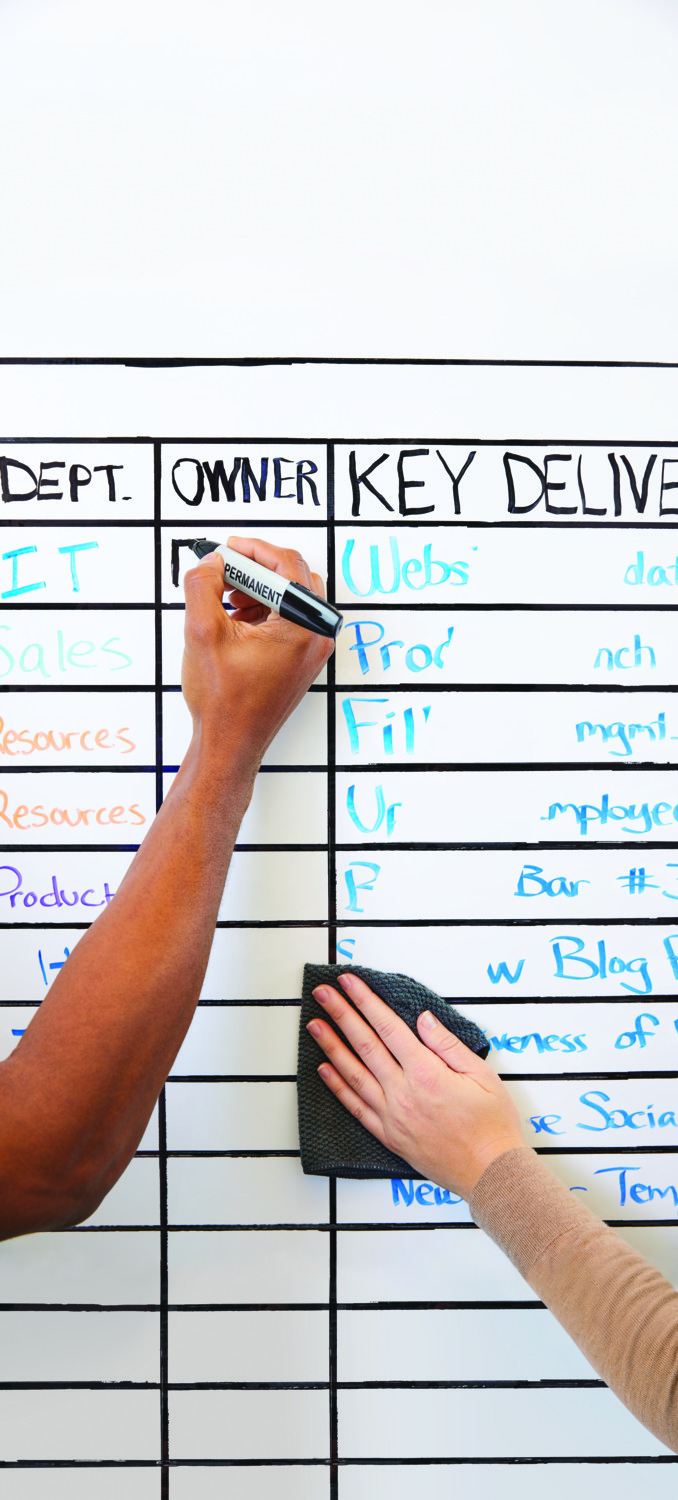 DEPT. OWNER KEY DELIVE
IT PERMANENT Webs dat
Sales Prod nch
Resources Fil mgmt.
Resources Ur mployee
Product Bar #3
w Blog
veness of
se Socia
New - Tem